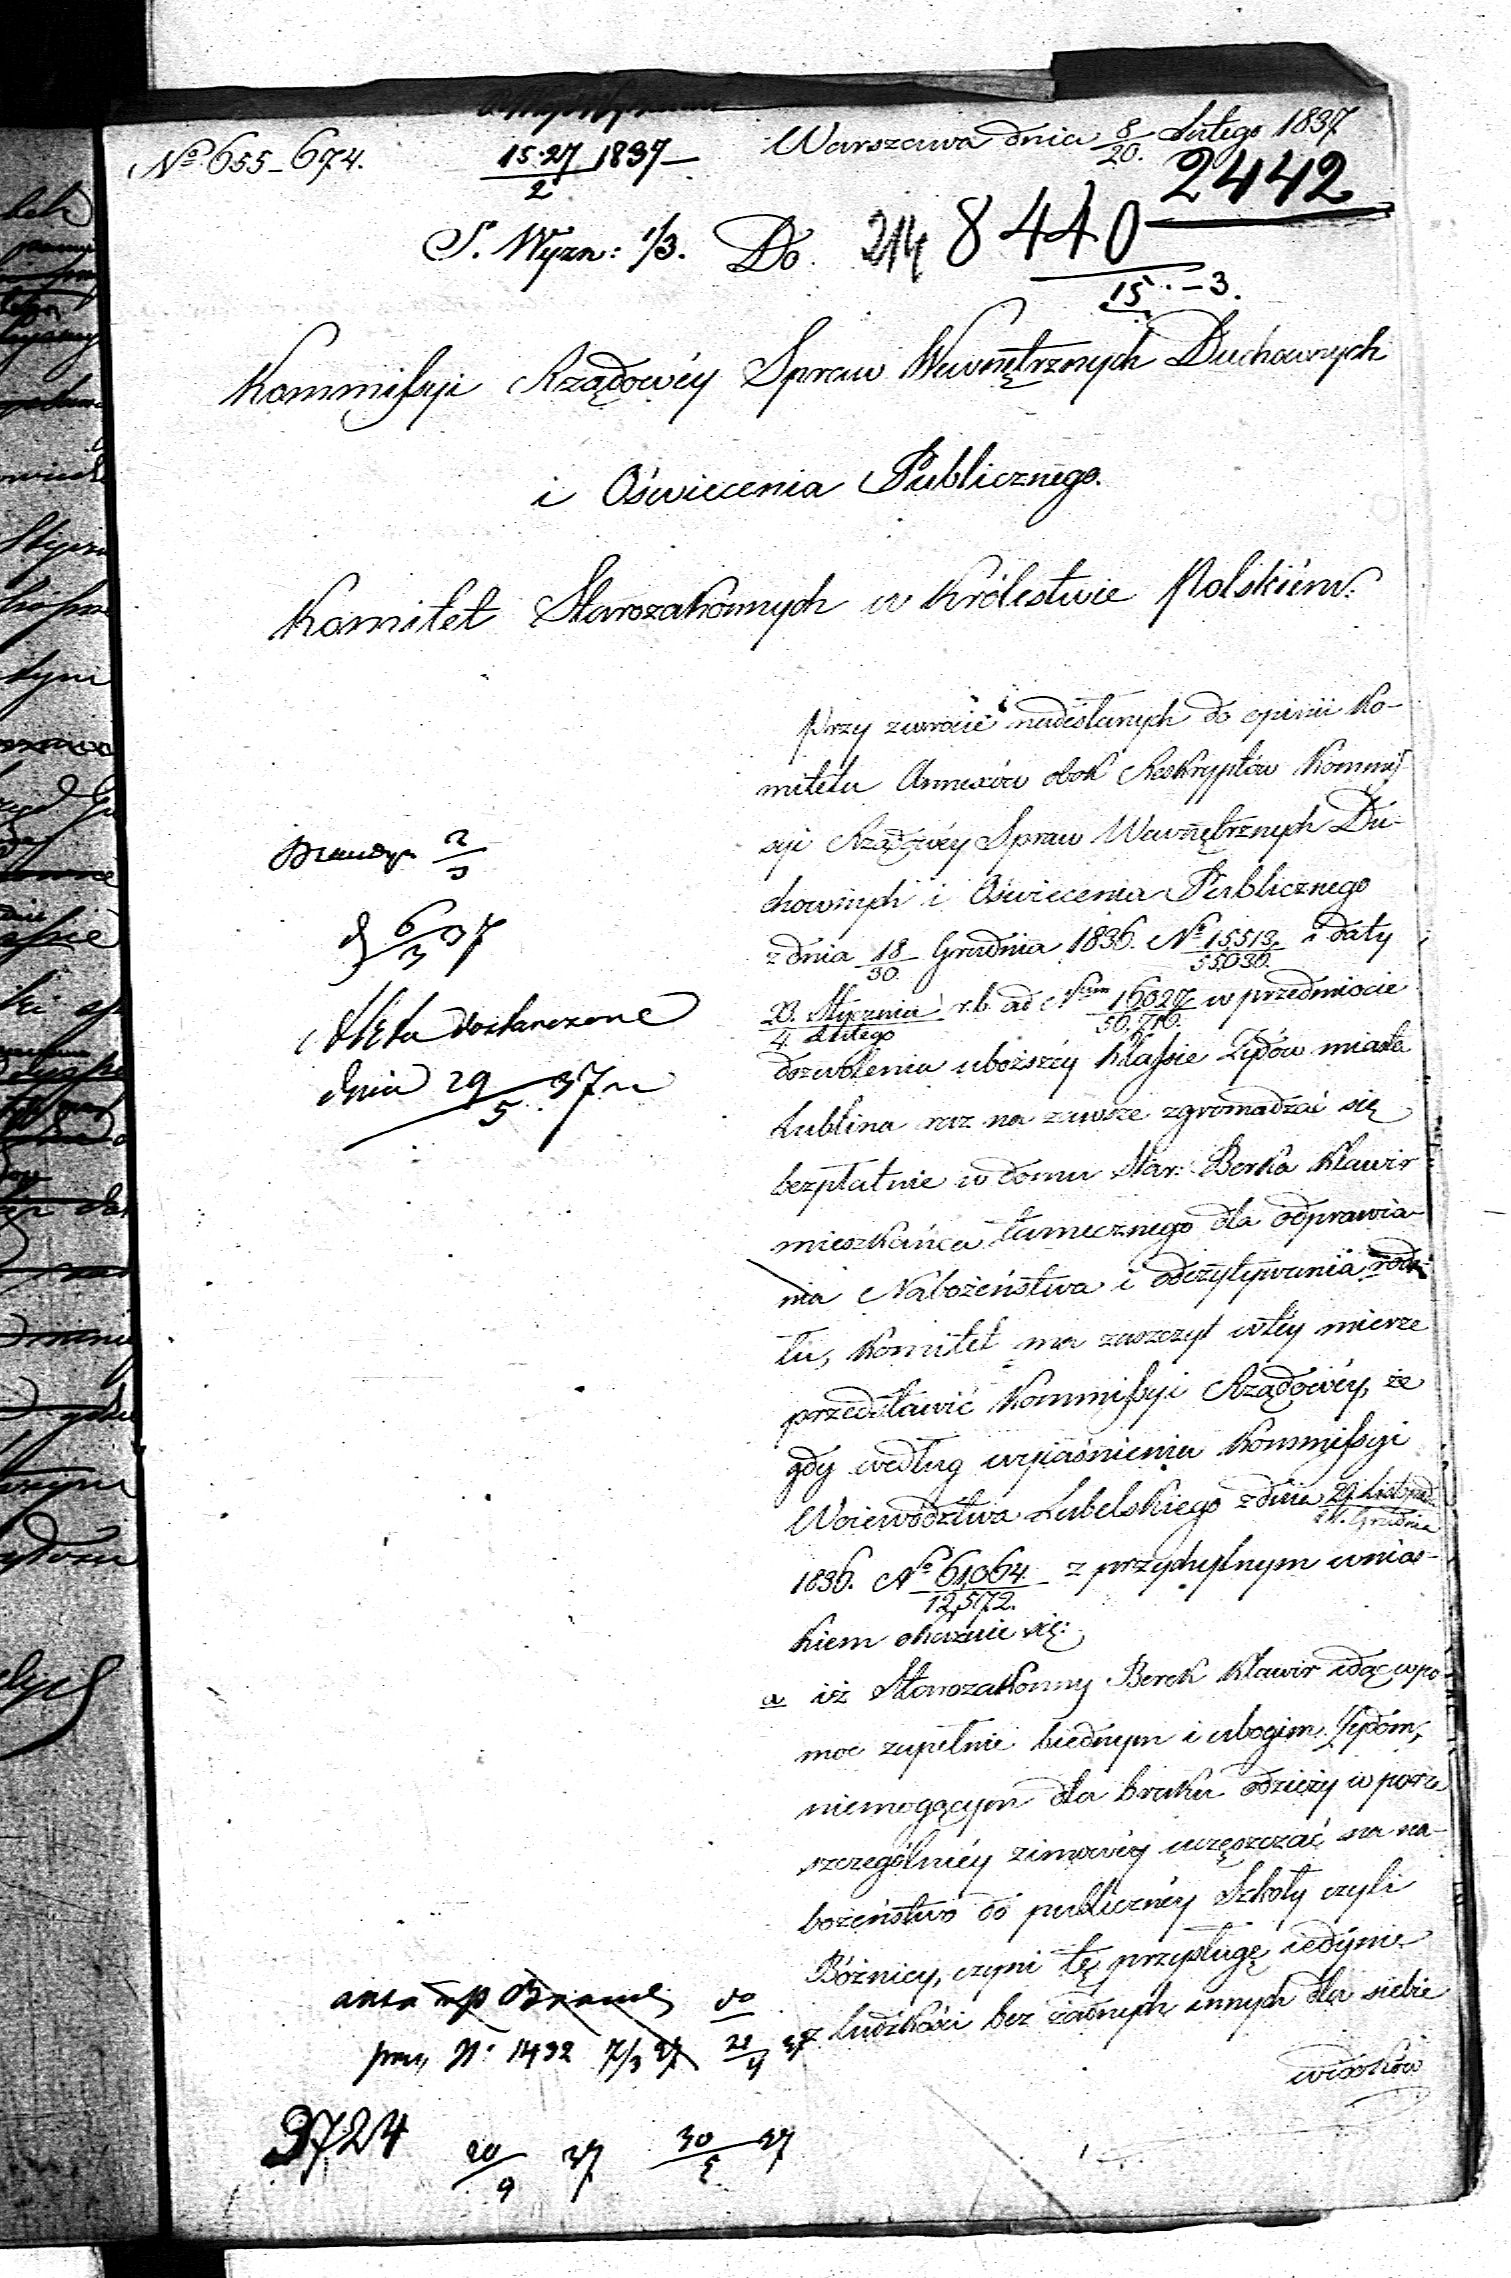 № 655_674.
15.27/2 1837
Warszawa dnia 8/20. Lutego 1837
2442
S. Wyzn: 1/3. Do 214 8440
15 - 3.
Kommissyi Rządowéy Spraw Wewnętrznych Duchownych
i Oświecenia Publicznego.
Komitet Starozakonnych w Królestwie Polskiém.
Przy zwrocie nadesłanych do opinii Ko-
mitetu Annexów obok Reskryptów Kommis-
syi Rządowéy Spraw Wewnętrznych Du-
chownych i Oświecenia Publicznego
z dnia 18/30 Grudnia 1836. № 15,513/55,030. i daty
23. Stycznia/4 Lutego r.b. ad Num 16027/56,716. w przedmiocie
dozwolenia uboższéy Klassie Żydów miasta
Lublina raz na zawsze zgromadzać się
bezpłatnie w domu Star: Berka Klawir
mieszkańca tamecznego dla odprawia-
nia Nabożeństwa i odczytywania rodz-
łu, Komitet ma zaszczyt w téy mierze
przedstawić Kommissyi Rządowéy, że
gdy według wyiaśnienia Kommissyi
Województwa Lubelskiego z dnia 29 Listopad./11. Grudnia
1836. № 61,064/12,572. z przychylnym wnios-
kiem okazuie się:
a iż Starozakonny Berek Klawir idąc w po-
moc zupełnie biednym i ubogim Żydom,
niemogącym dla braku odzieży w porze
szczególniéy zimowéy uczęszczać na na-
bożeństwo do publicznéy Szkoły czyli
Bóżnicy, czyni tę przysługę iedynie
z ludzkości bez żadnych innych dla siebie
widoków
2/3
6/3 37
dostarczone
dnia 29/5 37
akta
№ 1432 7/3 37 22/4 37
3724 20/9 37 30/5 37